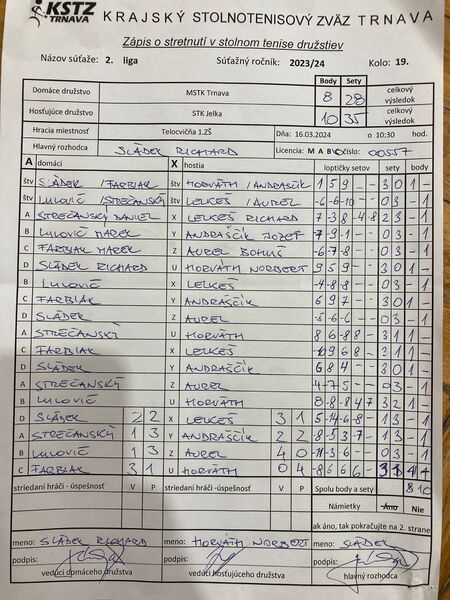 KSTZ
TRNAVA
KRAJSKÝ STOLNOTENISOVÝ ZVÄZ TRNAVA
Zápis o stretnutí v stolnom tenise družstiev
Názov súťaže: 2. liga Súťažný ročník: 2023/24 Kolo: 19.
Body Sety
Domáce družstvo MSTK Trnava 8 28 celkový výsledok
Hosťujúce družstvo STK Jelka 10 35 celkový výsledok
Hracia miestnosť Telocvičňa 1.ZŠ Dňa: 16.03.2024 o 10:30 hod.
Hlavný rozhodca SLÁDEK RICHARD Licencia: M A B C číslo: 00557
A domáci X hostia loptičky setov sety body
štv SLÁDEK / FARBIAK štv HORVÁTH / ANDRAŠČÍK 1 5 9 - - 3 0 1 -
štv LULOVIČ / STREČANSKÝ štv LELKEŠ / AUREL -6 -6 -10 - - 0 3 - 1
A STREČANSKÝ DANIEL X LELKEŠ RICHARD 7 -3 8 -4 -8 2 3 - 1
B LULOVIČ MAREK Y ANDRAŠČÍK JOZEF -7 -9 -1 - - 0 3 - 1
C FARBIAK MAREK Z AUREL BOHUŠ -6 -7 -8 - - 0 3 - 1
D SLÁDEK RICHARD U HORVÁTH NORBERT 9 5 9 - - 3 0 1 -
B LULOVIČ X LELKEŠ -4 -8 -8 - - 0 3 - 1
C FARBIAK Y ANDRAŠČÍK 6 9 7 - - 3 0 1 -
D SLÁDEK Z AUREL -5 -6 -6 - - 0 3 - 1
A STREČANSKÝ U HORVÁTH 8 6 -8 8 - 3 1 1 -
C FARBIAK X LELKEŠ -10 9 6 8 - 3 1 1 -
D SLÁDEK Y ANDRAŠČÍK 6 8 4 - - 3 0 1 -
A STREČANSKÝ Z AUREL -4 -7 -5 - - 0 3 - 1
B LULOVIČ U HORVÁTH 8 -8 -8 4 7 3 2 1 -
D SLÁDEK 2 2 X LELKEŠ 3 1 5 -14 -6 -8 - 1 3 - 1
A STREČANSKÝ 1 3 Y ANDRAŠČÍK 2 2 -8 5 -3 -7 - 1 3 - 1
B LULOVIČ 1 3 Z AUREL 4 0 -11 -3 -6 - - 0 3 - 1
C FARBIAK 3 1 U HORVÁTH 0 4 -8 6 6 6 - 3 1
striedaní hráči - úspešnosť V P striedaní hráči - úspešnosť V P Spolu body a sety 8 10
Námietky Áno Nie
ak áno, tak pokračujte na 2. strane
meno: SLÁDEK RICHARD meno: HORVÁTH NORBERT meno: SLÁDEK
podpis: podpis: podpis:
vedúci domáceho družstva vedúci hosťujúceho družstva hlavný rozhodca